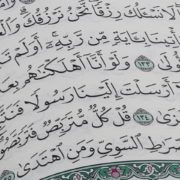 لَا نَسْـَٔلُكَ رِزْقًا نَّحْنُ نَرْزُقُكَ
بِـَٔايَةٍ مِّن رَّبِّهِۦٓ أَوَلَمْ
١٣٣ وَلَوْ أَنَّآ أَهْلَكْنَٰهُم
أَرْسَلْتَ إِلَيْنَا رَسُولًا
١٣٤ قُلْ كُلٌّ مُّتَرَبِّصٌ
ٱلسَّوِيِّ وَمَنِ ٱهْتَدَىٰ